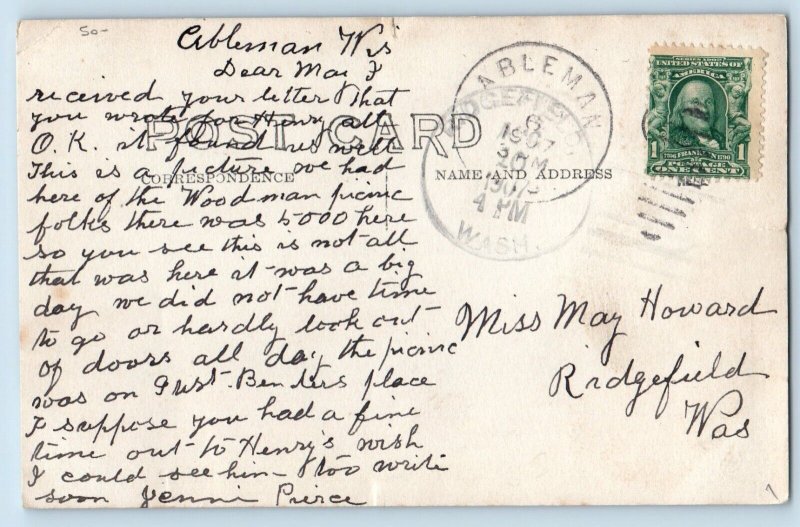 50-
Ableman Wis
Dear May I
received your letter that
you wrote for Henry all
O.K. it found us well
This is a picture we had
here of the Woodman picnic
folks there was 5000 here
so you see this is not all
that was here it was a big
day we did not have time
to go or hardly look out
of doors all day the picnic
was on Gust. Benders place
I suppose you had a fine
time out to Henry's wish
I could see him too write
soon Jenni Pierce
POST CARD
CORRESPONDENCE
NAME AND ADDRESS
ABLEMAN
6
1907
RIDGEFIELD
1907
4 PM
WASH.
SERIES 1902
UNITED STATES OF
AMERICA
1706 FRANKLIN 1790
1 1
POSTAGE
ONE CENT
Miss May Howard
Ridgefield
Was